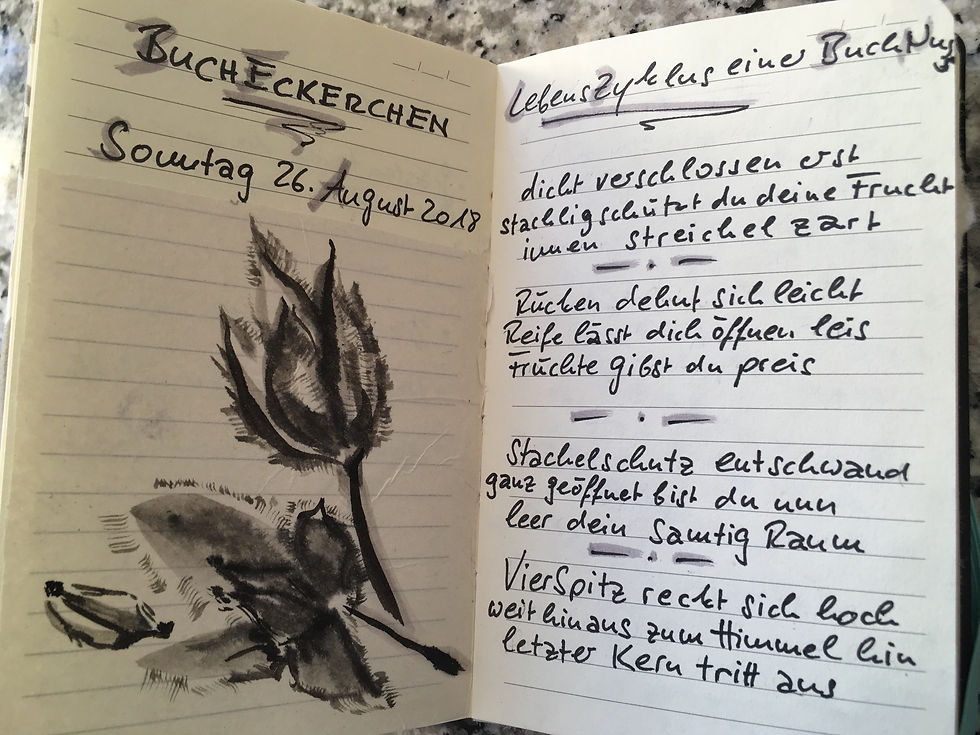 BUCHECKERCHEN
Sonntag 26. August 2018
LebensZyklus einer BuchNuss
dicht verschlossen erst
stachlig schützt du deine Frucht
innen streichel zart
Rücken dehnt sich leicht
Reife lässt dich öffnen leis
Früchte gibst du preis
Stachelschutz entschwand
ganz geöffnet bist du nun
leer dein samtig Raum
VierSpitz reckt sich hoch
weit hinaus zum Himmel hin
letzter Kern tritt aus